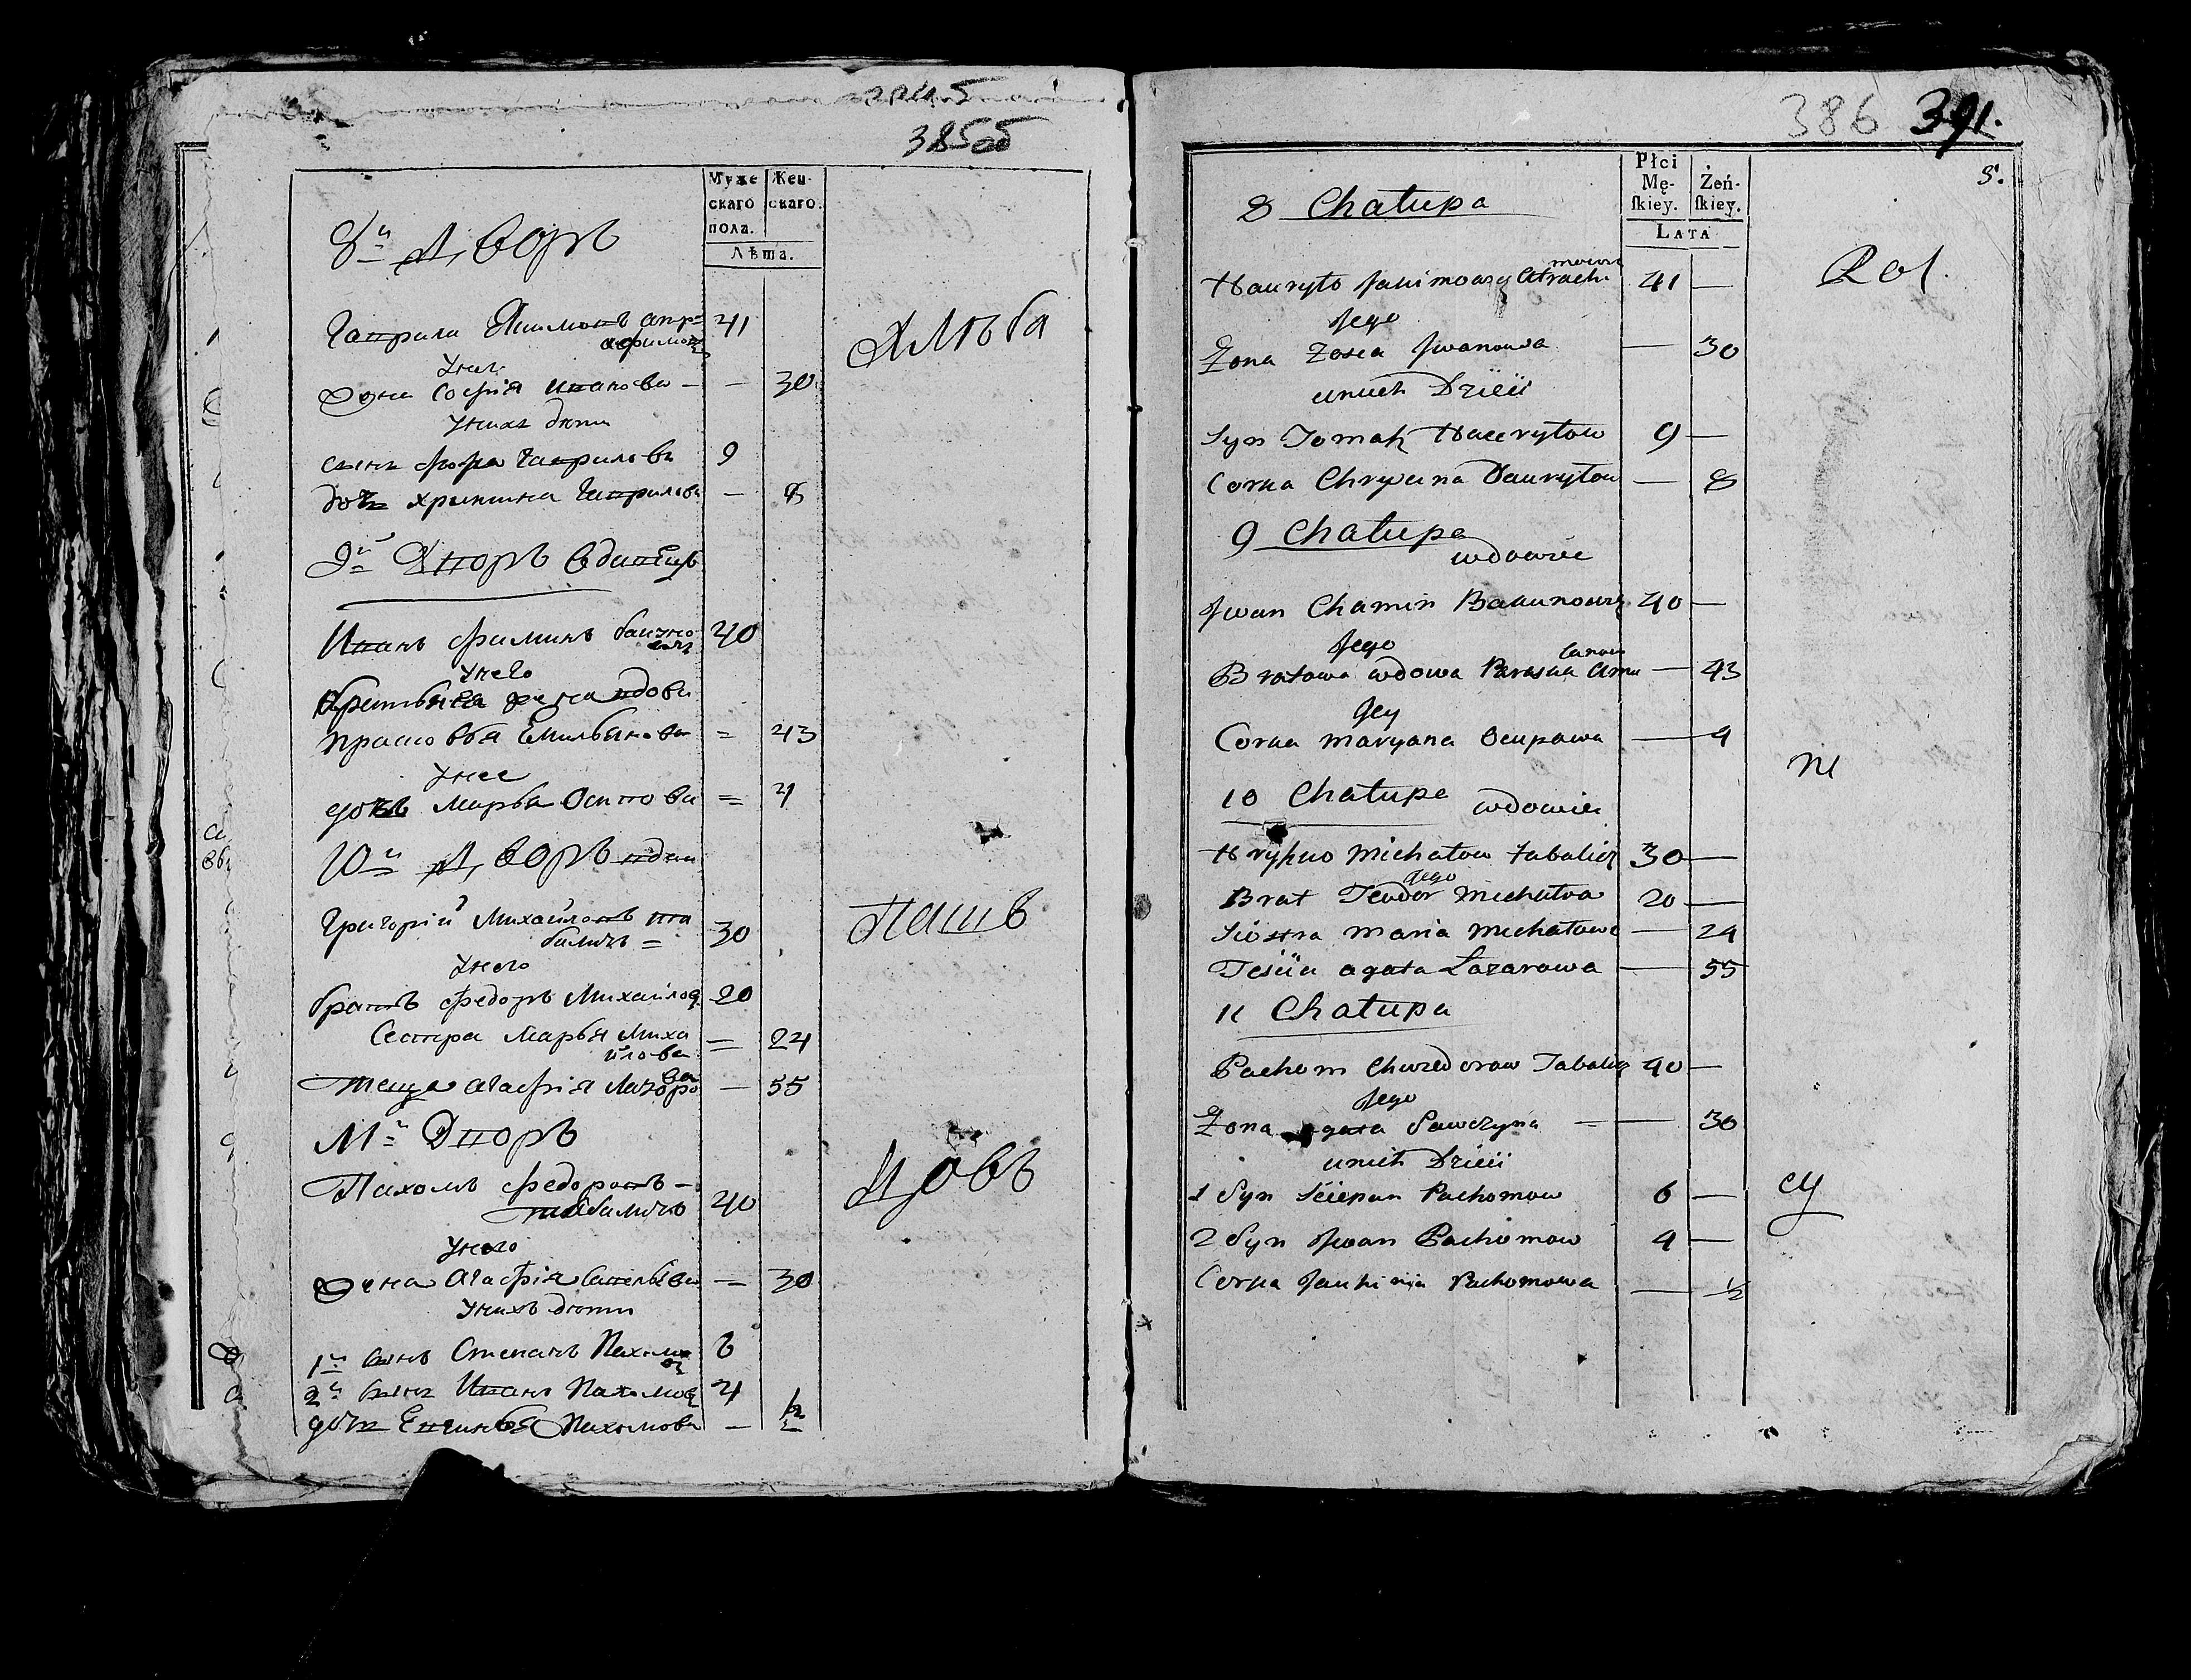 385об
Муже
скаго
пола.
Жен-
скаго.
Лѣта.
8й Дворъ
Гаврила Якимовъ 41
Унего
Жена Софія Иванова — — 30
Унихъ дети
сынъ Гаврилова 9
дочь Христина Гаврилова — 8
9й Дворъ вдовецъ
Иванъ Фоминъ 40
Унего
братьнея жена вдова
Прасковья Емильянова = 43
Унее
дочь Марья Осипова = 4
10й Дворъ вдов
Григорій Михайловъ Та
баличъ = 30
Унего
братъ Федоръ Михайлов 20
Сестра Марья Миха
йлова = 24
теща Агафія Лазоро
ва — 55
11й Дворъ
Пахомъ Федоровъ —
Табаличъ 40
Унего
Жена Агафія Савельева — 30
Унихъ дети
1й сынъ Степанъ Пахомо
въ 6
2й сынъ Иванъ Пахомовъ 4
дочь Евгинья Пахомова — ½
386 391.
Płci
Mę-
ſkiey.
Żeń-
ſkiey.
LATA
8 Chałupa
Hauryło Jakimowy 41 —
Jego
Żona Zosia Jwanowa — 30
unich Dzieci
Syn Tomasz Hauryłow 9 —
Corka Chrystina Hauryłow — 8
Rol
9 Chałupa
wdowiec
Jwan Chamin Bakunowicz 40 —
Jego
Bratowa wdowa Paraska — 43
Jey
Corka Maryana Ocupowa — 4
ni
10 Chałupa wdowiec
Hryszko Michałow Tabalicz 30 —
Jego
Brat Teodor Michałow 20 —
Siostra Maria Michałowa — 24
Teścia Agata Łazarowa — 55
11 Chałupa
Pachom Chwedorow Tabalicz 40 —
Jego
Żona Agata Sawczyna — 30
unich Dzieci
1 Syn Sciepan Pachomow 6 —
cy
2 Syn Jwan Pachomow 4 —
Corka Jauhinija Pachomowa — ½